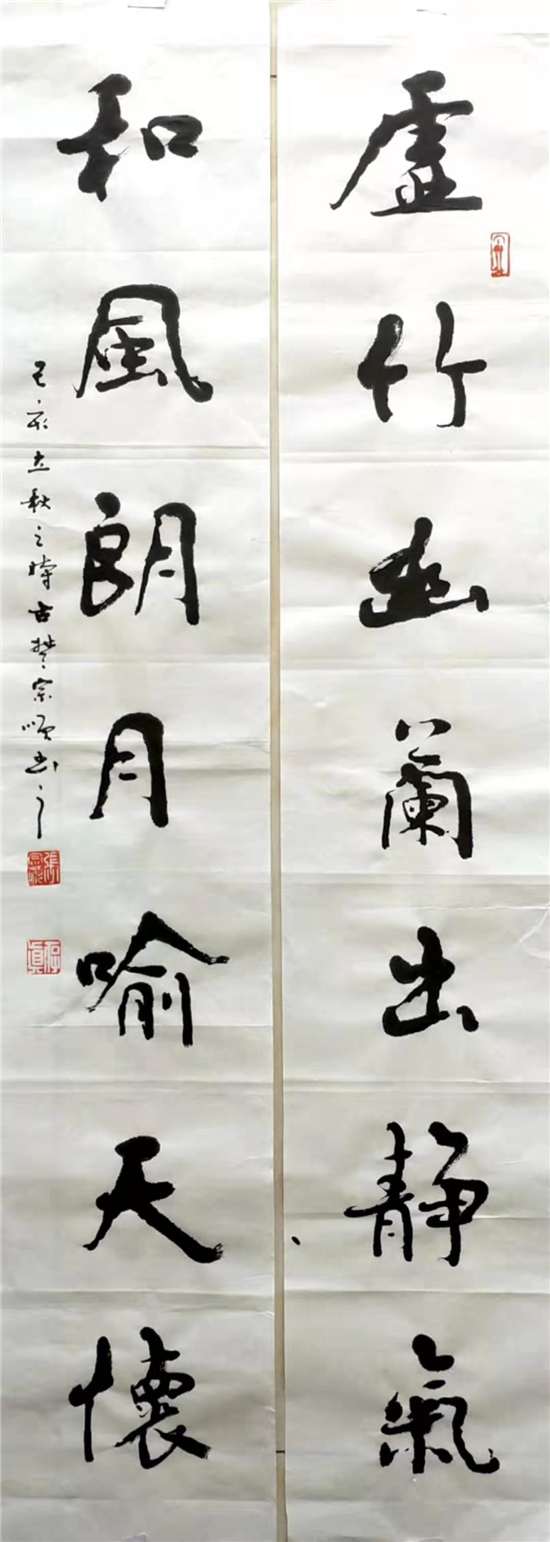 虛竹幽蘭出靜氣
和風朗月喻天懷
己亥立秋之時古楚宗順書